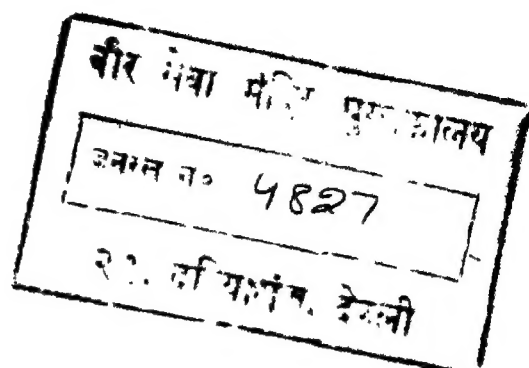 वीर सेवा मंदिर पुस्तकालय
जनरल न० 4827
२१, दरियागंज, देहली